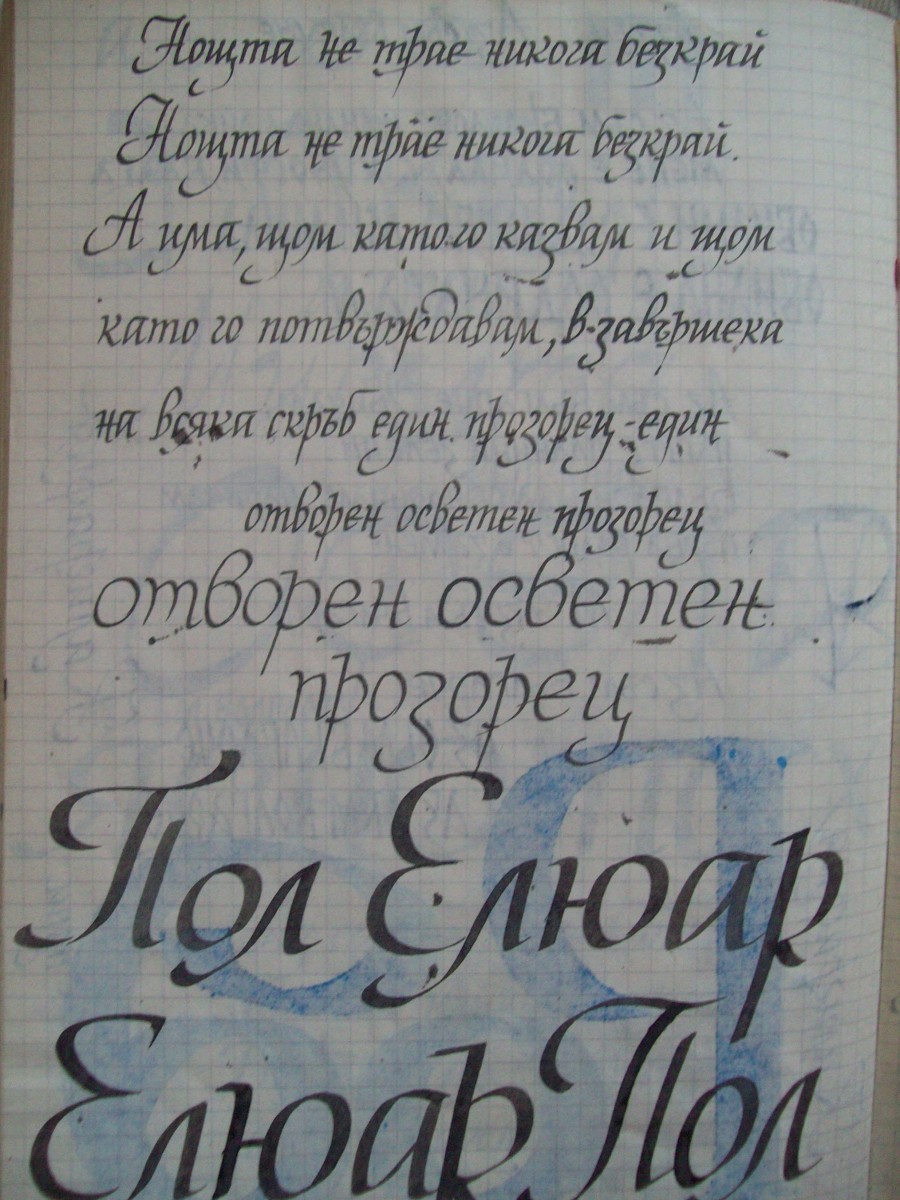 Нощта не трае никога безкрай
Нощта не трае никога безкрай.
А има, щом като го казвам и щом
като го потвърждавам, в завършека
на всяка скръб един прозорец - един
отворен осветен прозорец
отворен осветен
прозорец
Пол Елюар
Елюар Пол